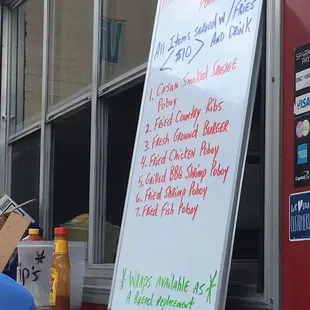 All Items served w/ FRIES
<$10> AND DRINK
1. Cajun Smoked Sausage
Poboy
2. Fried Country Ribs
3. Fresh Ground Burger
4. Fried Chicken Poboy
5. Grilled BBQ Shrimp Poboy
6. Fried Shrimp Poboy
7. Fried Fish Poboy
* Wraps Available As *
A Bread Replacement
SPARK
PAY
VISA
Capital One
WE
CUSTOMERS